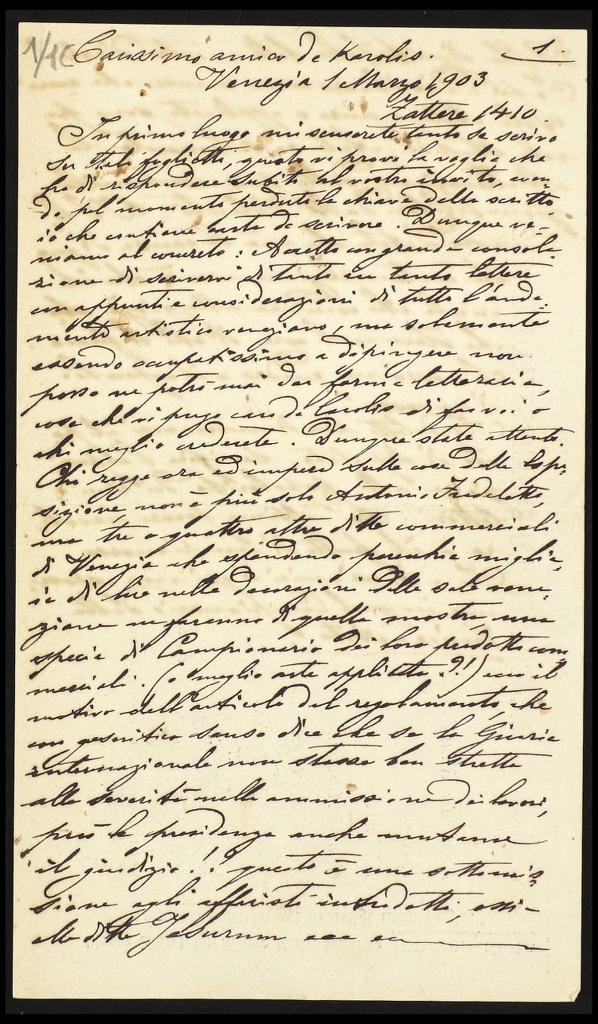 1.
Carissimo amico de Karolis.
Venezia 1 Marzo 1903
Zattere 1410.
In primo luogo mi scuserete tanto se scrivo
su tali foglietti, questo vi prova la voglia che
ho di rispondere subito al vostro invito, aven-
do pel momento perduto la chiave dello scritto-
io che contiene carta da scrivere. Dunque ve-
niamo al concreto: Accetto con grande consola-
zione di scrivervi di tanto in tanto lettere
con appunti e considerazioni di tutto l'anda-
mento artistico veneziano, ma solamente
essendo occupatissimo a dipingere non
posso ne potrò mai dar forma letteraria,
cosa che vi prego caro de Carolis di far voi o
chi meglio crederete. Dunque state attento.
Chi regge ora ed impera sulle cose delle Espo-
sizione, non è più solo Antonio Fradeletto,
ma tre o quattro altre ditte commerciali
di Venezia che spendendo parecchie miglia-
ia di lire nelle decorazioni delle sale vene-
ziane ne faranno di quella mostra, una
specie di Campionario dei loro prodotti com-
merciali. (o meglio arte applicata?!) ecco il
motivo dell'articolo del regolamento, che
con gesuitico senso dice che se la Giuria
internazionale non stasse ben stretta
alla severità nelle ammissione dei lavori,
può la presidenza anche mutarne
il giudizio!! questo è una sottomis-
sione agli affaristi introdotti,
alle ditte Jesurum ecc ecc